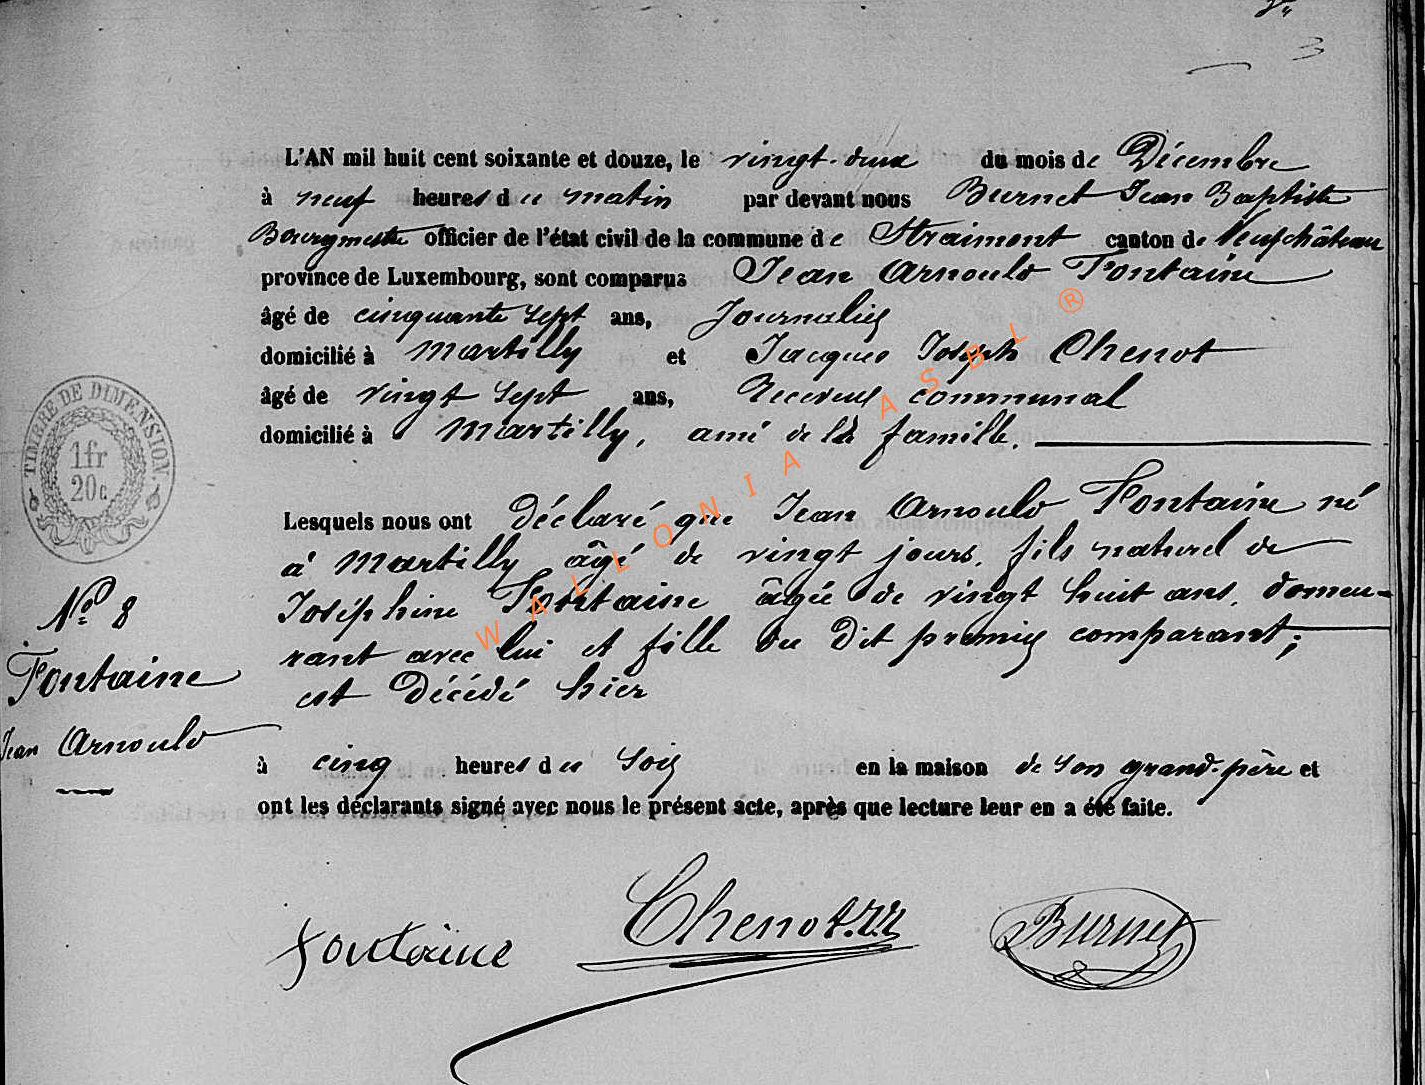 3
L'AN mil huit cent soixante et douze, le vingt-deux du mois de Décembre
à neuf heures du matin par devant nous Burnet Jean Baptiste
Bourgmestre officier de l'état civil de la commune de Straimont canton de Neufchâteau
province de Luxembourg, sont comparus Jean Arnould Fontaine
âgé de cinquante sept ans, Journalier
domicilié à Martilly et Jacques Joseph Chenot
âgé de vingt sept ans, Receveur communal
domicilié à Martilly, ami de la famille.
TIMBRE DE DIMENSION
1fr
20c
Lesquels nous ont déclaré que Jean Arnould Fontaine né
à Martilly âgé de vingt jours, fils naturel de
Joséphine Fontaine âgée de vingt huit ans, demeu-
rant avec lui et fille du dit premier comparant;
est décédé hier
à cinq heures du soir en la maison de son grand-père et
ont les déclarants signé avec nous le présent acte, après que lecture leur en a été faite.
N° 8
Fontaine
Jean Arnould
Fontaine Chenot Burnet
WALLONIA ASBL ®